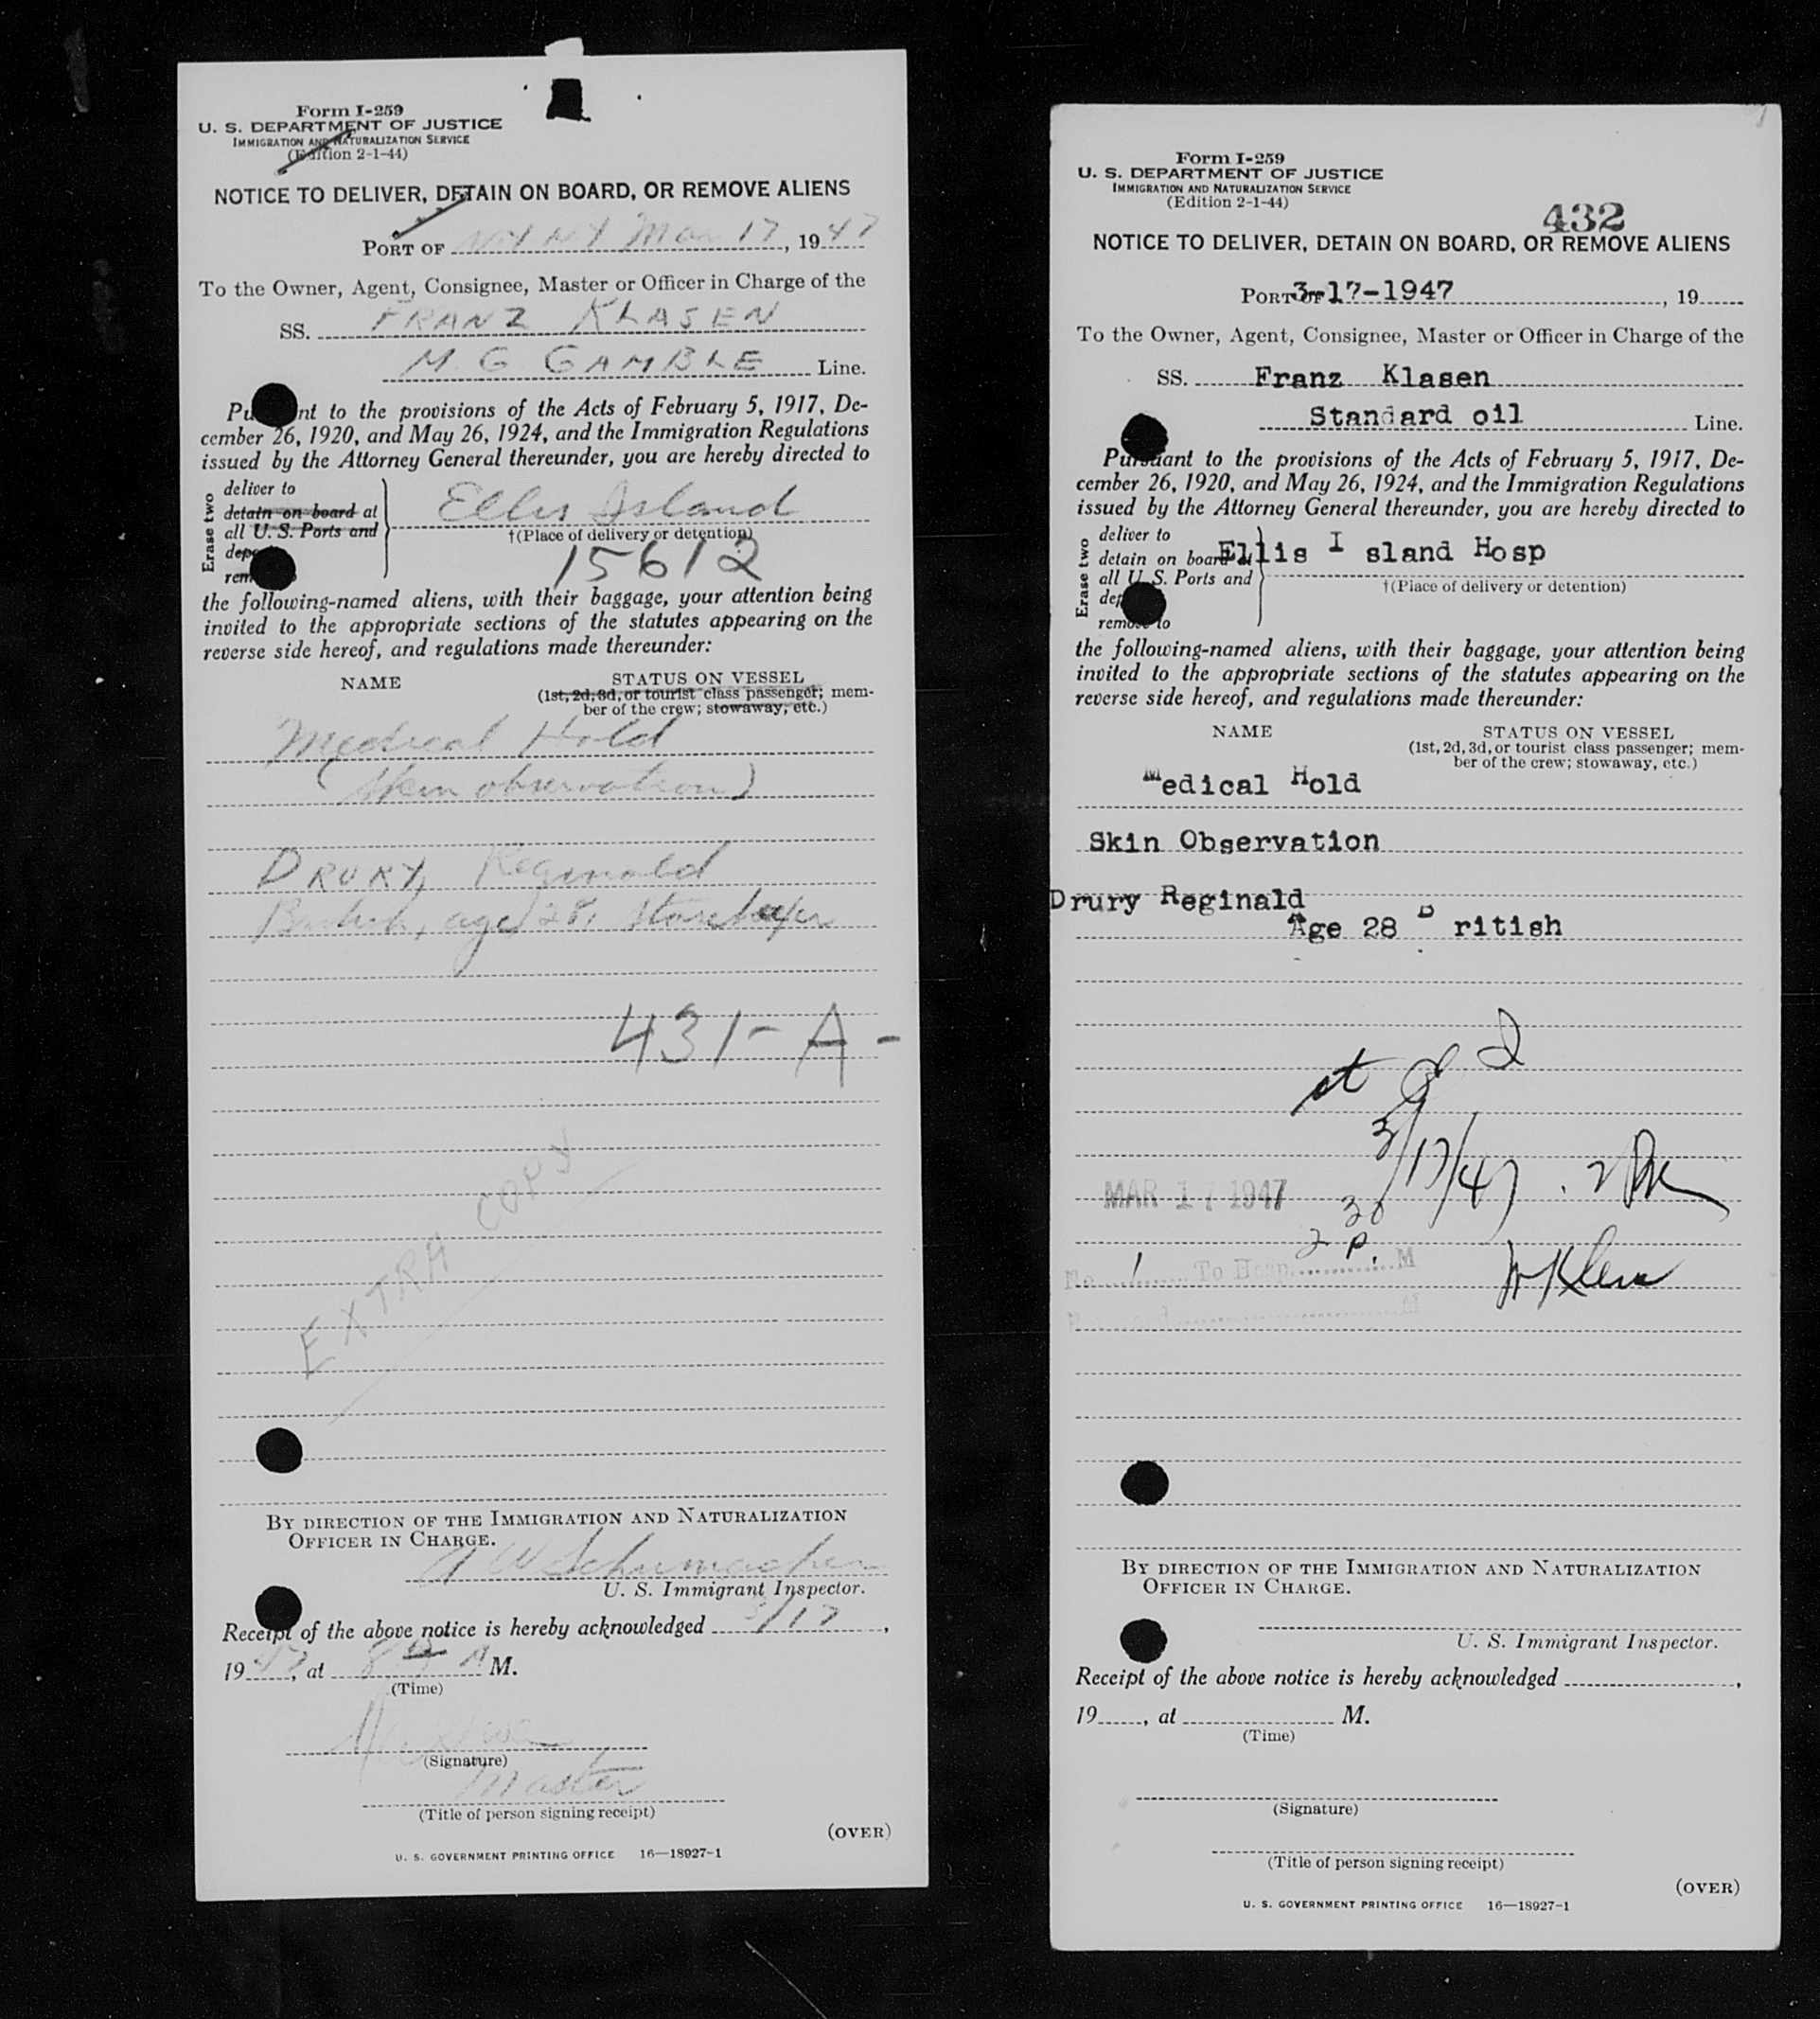 Form I-259
U. S. DEPARTMENT OF JUSTICE
IMMIGRATION AND NATURALIZATION SERVICE
(Edition 2-1-44)
NOTICE TO DELIVER, DETAIN ON BOARD, OR REMOVE ALIENS
PORT OF NY NY Mar 17, 1947
To the Owner, Agent, Consignee, Master or Officer in Charge of the
SS. FRANZ KLASEN
M. G GAMBLE Line.
Pu nt to the provisions of the Acts of February 5, 1917, De-
cember 26, 1920, and May 26, 1924, and the Immigration Regulations
issued by the Attorney General thereunder, you are hereby directed to
Erase two
deliver to
detain on board at
all U. S. Ports and
dep
rem
Ellis Island
†(Place of delivery or detention)
15612
the following-named aliens, with their baggage, your attention being
invited to the appropriate sections of the statutes appearing on the
reverse side hereof, and regulations made thereunder:
NAME
STATUS ON VESSEL
(1st, 2d, 3d, or tourist class passenger; mem-
ber of the crew; stowaway, etc.)
Medical Hold
(Skin observation)
DRURY, Reginald
British, age 28, storekeeper
431-A-
EXTRA COPY
BY DIRECTION OF THE IMMIGRATION AND NATURALIZATION
OFFICER IN CHARGE.
A W Schumacher
U. S. Immigrant Inspector.
Receipt of the above notice is hereby acknowledged 3/17,
1947, at A M.
(Time)
(Signature)
Master
(Title of person signing receipt)
(OVER)
U. S. GOVERNMENT PRINTING OFFICE 16—18927-1
Form I-259
U. S. DEPARTMENT OF JUSTICE
IMMIGRATION AND NATURALIZATION SERVICE
(Edition 2-1-44)
432
NOTICE TO DELIVER, DETAIN ON BOARD, OR REMOVE ALIENS
PORT OF 3-17-1947, 19
To the Owner, Agent, Consignee, Master or Officer in Charge of the
SS. Franz Klasen
Standard oil Line.
Pursuant to the provisions of the Acts of February 5, 1917, De-
cember 26, 1920, and May 26, 1924, and the Immigration Regulations
issued by the Attorney General thereunder, you are hereby directed to
Erase two
deliver to
detain on board at
all U. S. Ports and
dep
remove to
Ellis I sland Hosp
†(Place of delivery or detention)
the following-named aliens, with their baggage, your attention being
invited to the appropriate sections of the statutes appearing on the
reverse side hereof, and regulations made thereunder:
NAME
STATUS ON VESSEL
(1st, 2d, 3d, or tourist class passenger; mem-
ber of the crew; stowaway, etc.)
Medical Hold
Skin Observation
Drury Reginald
Age 28 B ritish
at E I
3/17/47. 2 PM
MAR 17 1947
2 30 P.
No. 1 To Hosp. M
M
W Klein
BY DIRECTION OF THE IMMIGRATION AND NATURALIZATION
OFFICER IN CHARGE.
U. S. Immigrant Inspector.
Receipt of the above notice is hereby acknowledged ,
19 , at M.
(Time)
(Signature)
(Title of person signing receipt)
(OVER)
U. S. GOVERNMENT PRINTING OFFICE 16—18927-1